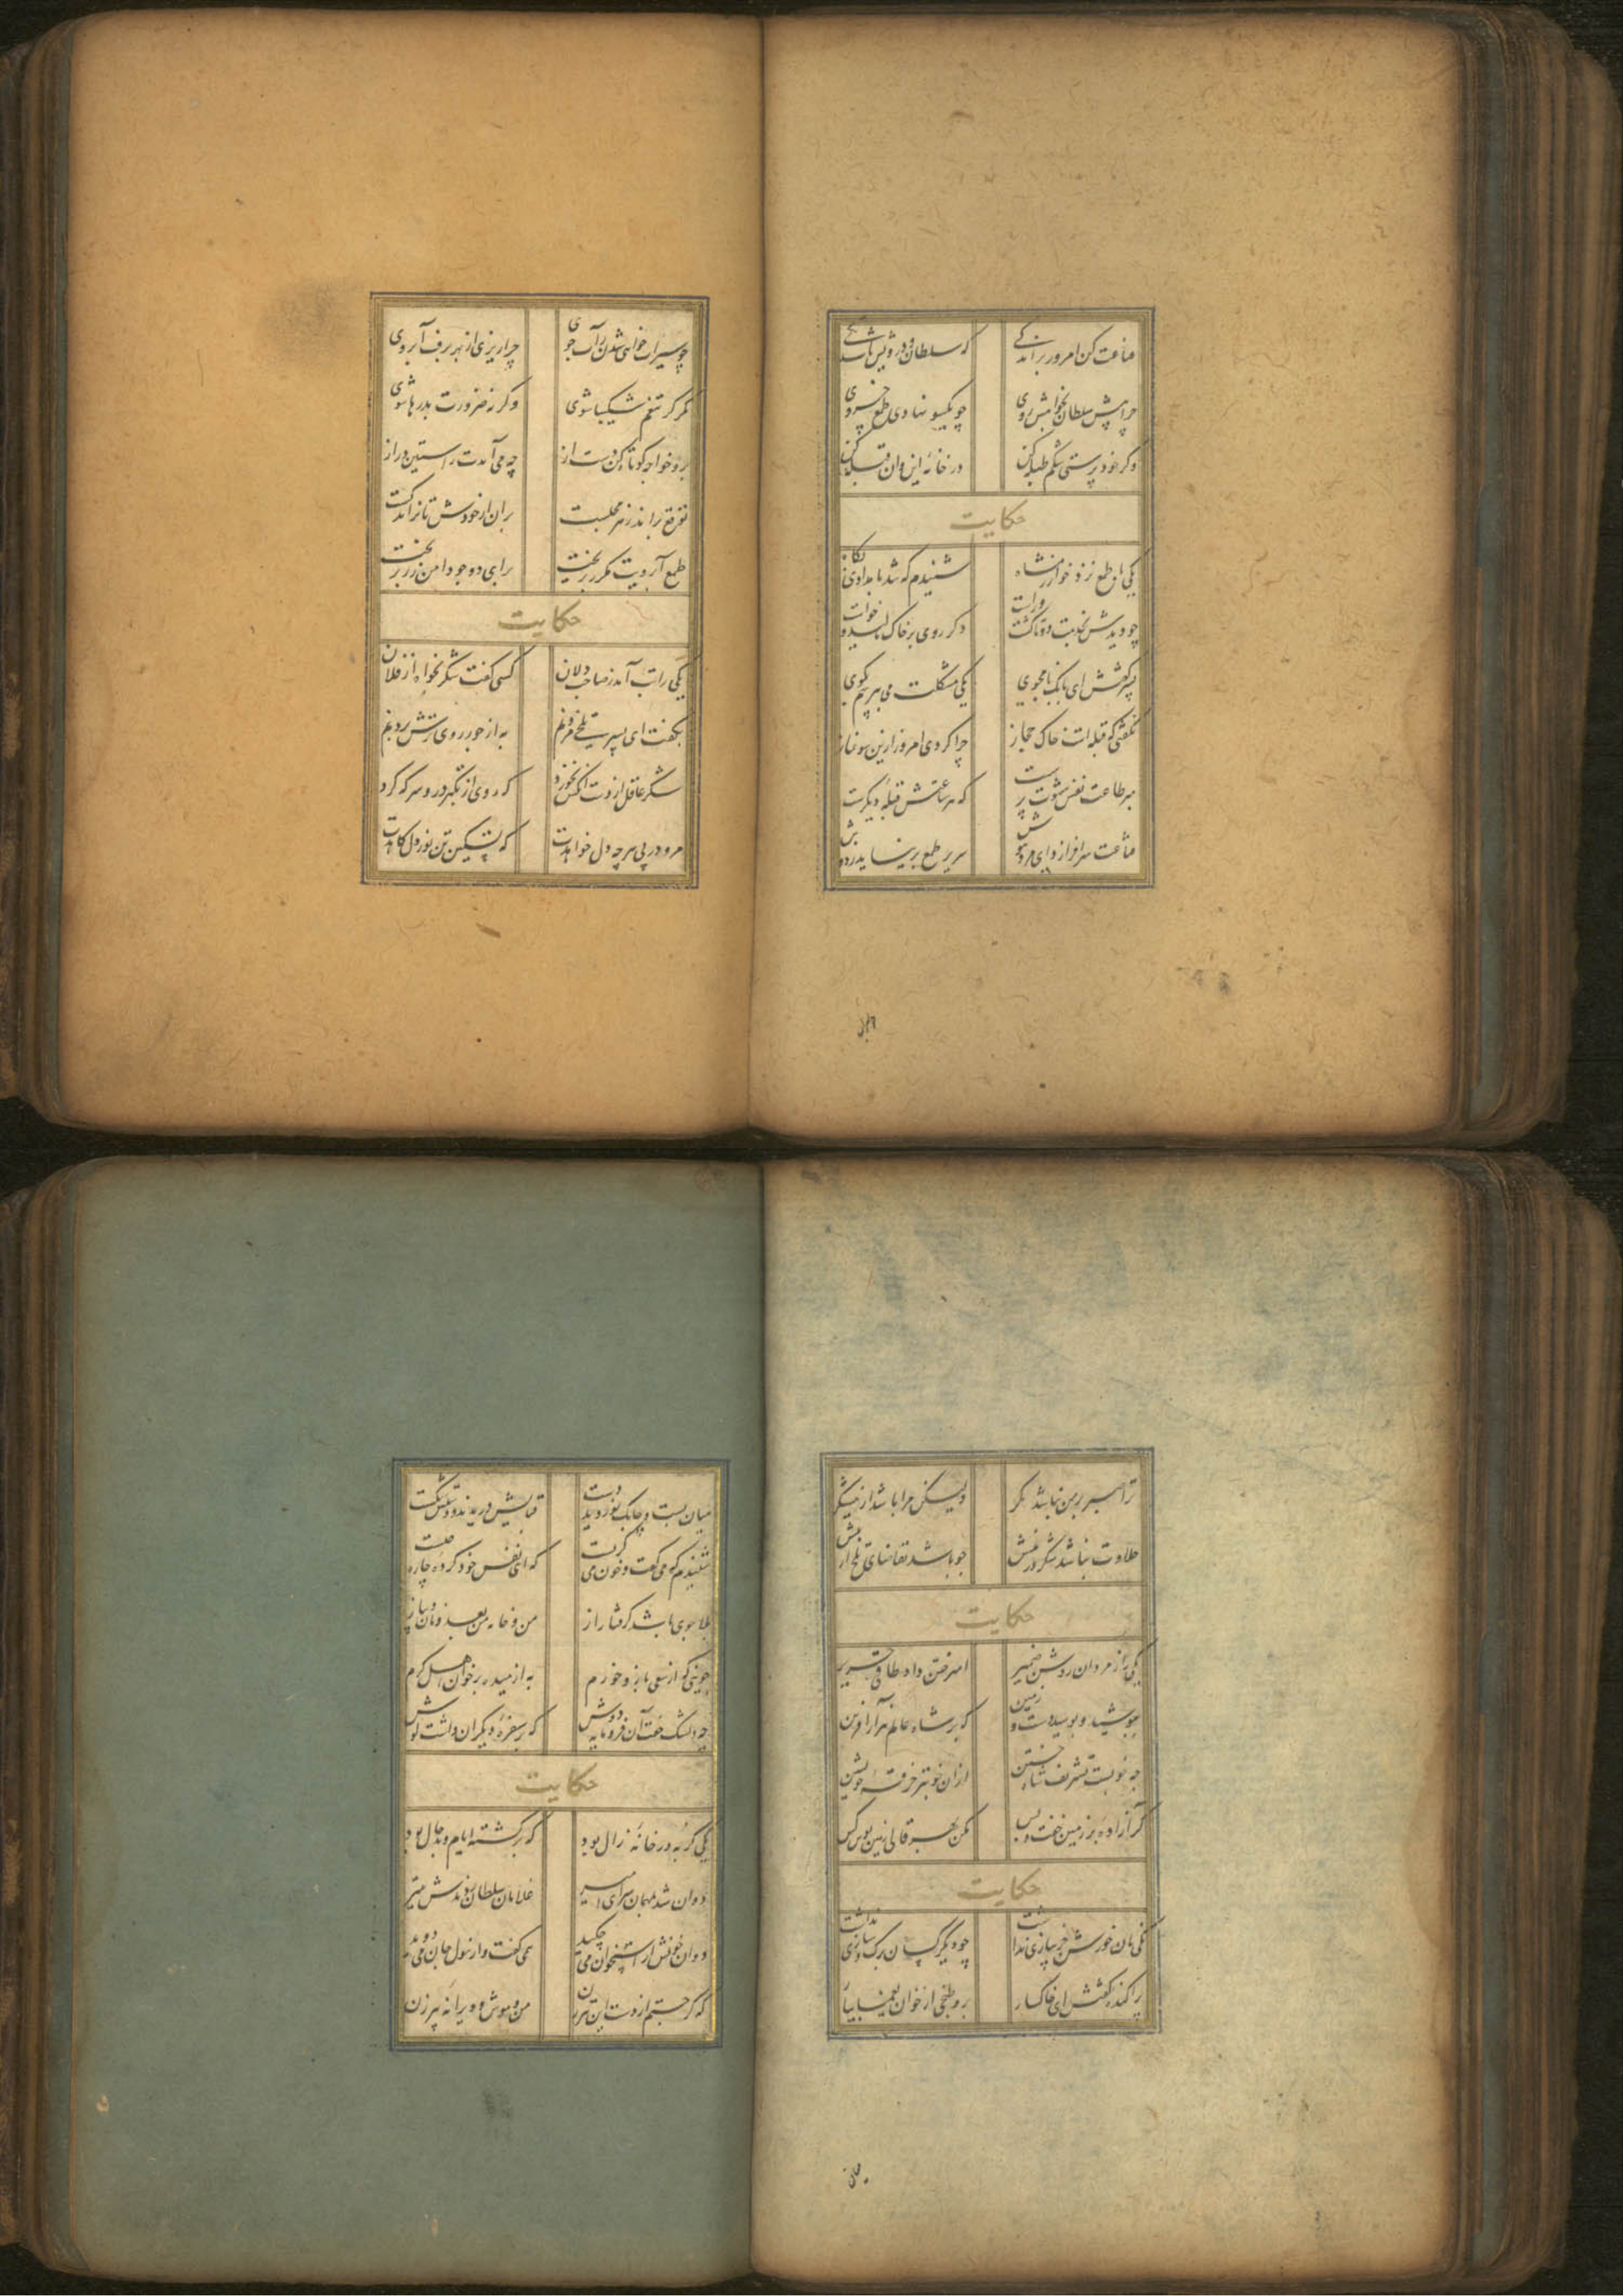 قناعت کن امروز بر اندکی که سلطان و درویش باشد یکی
چرا پیش سلطان بخواهش روی چو یکسو نهادی طمع خسروی
وگر خود پرستی شکم طبله کن در خانهٔ این و آن قبله کن
حکایت
یکی با طمع نزد خوارزمشاه شنیدم که شد بامدادی پگاه
چو دیدش بخدمت دوتا گشت و راست دگر روی بر خاک مالید و خواست
پسر گفتش ای بابک نامجوی یکی مشکلت می بپرسم بگوی
نگفتی که قبله است خاک حجاز چرا کردی امروز ازین سو نماز
مبر طاعت نفس شهوت پرست که هر ساعتش قبلهٔ دیگرست
قناعت سرافرازد ای مرد هوش سر پر طمع بر نیاید ز دوش
چو سیراب خواهی شدن ز آب جوی چرا ریزی از بهر برف آبروی
مگر کز تنعم شکیبا شوی وگرنه ضرورت بدرها شوی
برو خواجه کوتاه کن دست از چه می آیدت ز آستین دراز
توقع براند ز هر مجلست بران از خودش تا نراند کست
طمع آبرویت مگر بریخت برای دو جو دامن در بریخت
حکایت
یکی را تب آمد ز صاحب دلان کسی گفت شکر بخواه از فلان
بگفت ای پسر تلخی مردنم به از جور روی ترش بردنم
شکر عاقل از دست آنکس نخورد که روی از تکبر درو سرکه کرد
مرو در پی هر چه دل خواهدت که تمکین تن نور دل کاهدت
ترا صبر بر من نباشد مگر ولیکن مرا باشد از نیشکر
حلاوت نباشد شکر در نیش چو باشد تقاضای تلخ از پیش
حکایت
یکی را ز مردان روشن ضمیر امیر ختن داد طاقی حریر
بپوشید و بوسید دست و زمین که بر شاه عالم هزار آفرین
چه خوبست تشریف شاه ختن از آن خوبتر خرقهٔ خویشتن
گر آزادهٔ بر زمین خسب و بس مکن بهر قالی زمین بوس کس
حکایت
یکی نان خورش جز پیازی نداشت چو دیگر کسان برگ و سازی نداشت
پراکندهٔ گفتش ای خاکسار برو طبخی از خوان یغما بیار
میان بست و چابک نوردید دست قبایش دریدند و دستش شکست
شنیدم که می گفت و خون می گریست که ای نفس خود کرده چاره چیست
بلا جوی باشد گرفتار از من و خانه من بعد و نان و پیاز
جوینی که از سعی بازو خورم به از میده بر خوان اهل کرم
چه دلتنگ خفت آن فرومایه دوش که بر سفرهٔ دیگران داشت گوش
حکایت
یکی گربه در خانهٔ زال بود که برگشته ایام و بدحال بود
دوان شد بمهمان سرای امیر غلامان سلطان زدندش بتیر
دوان خونش از استخوان می چکید همی گفت و از هول جان می دوید
که گر جستم از دست این تیرزن من و موش و ویرانهٔ پیرزن